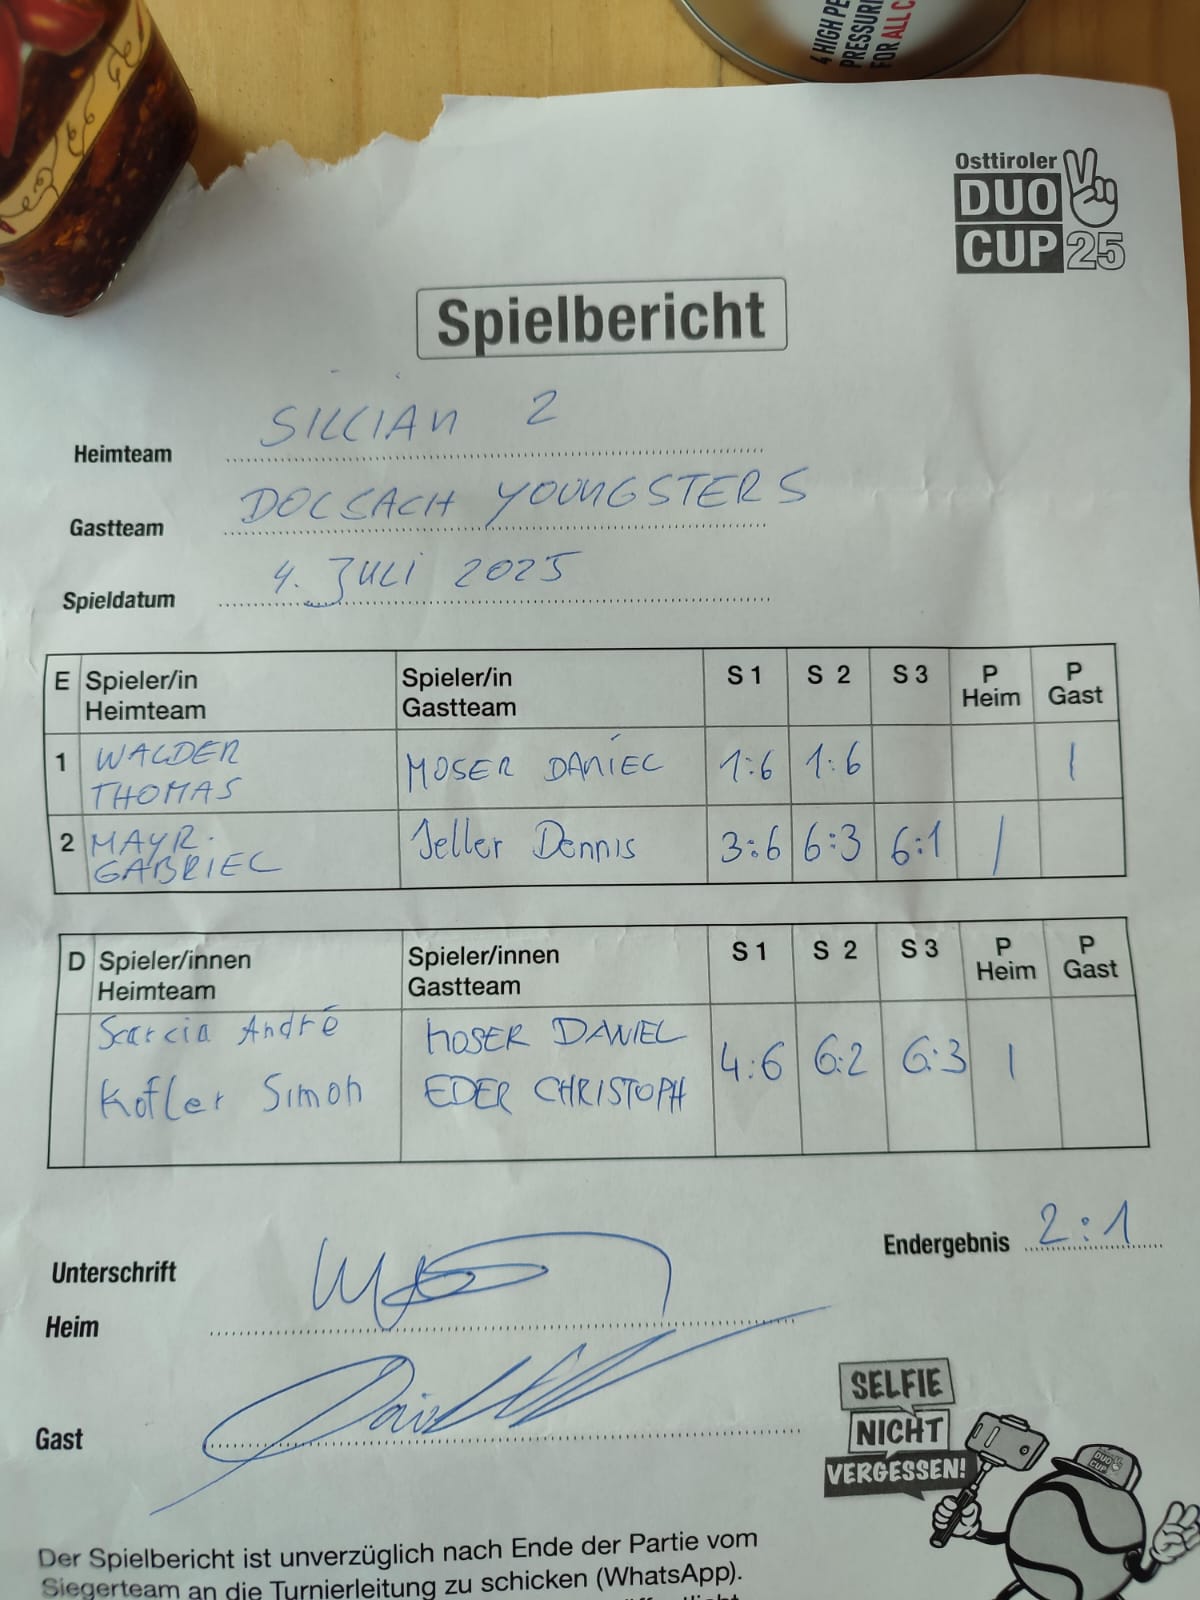 4 HIGH PE
PRESSURI
FOR ALL C
Osttiroler
DUO
CUP 25
Spielbericht
Heimteam SILLIAN 2
Gastteam DÖLSACH YOUNGSTERS
Spieldatum 4. JULI 2025
E Spieler/in Heimteam Spieler/in Gastteam S 1 S 2 S 3 P Heim P Gast
1 WALDER THOMAS MOSER DANIEL 1:6 1:6 1
2 MAYR GABRIEL Jeller Dennis 3:6 6:3 6:1 1
D Spieler/innen Heimteam Spieler/innen Gastteam S 1 S 2 S 3 P Heim P Gast
Scarcia André MOSER DANIEL 4:6 6:2 6:3 1
Kofler Simon EDER CHRISTOPH
Endergebnis 2:1
Unterschrift
Heim
Gast
SELFIE
NICHT
VERGESSEN!
DUO
CUP
Der Spielbericht ist unverzüglich nach Ende der Partie vom
Siegerteam an die Turnierleitung zu schicken (WhatsApp).